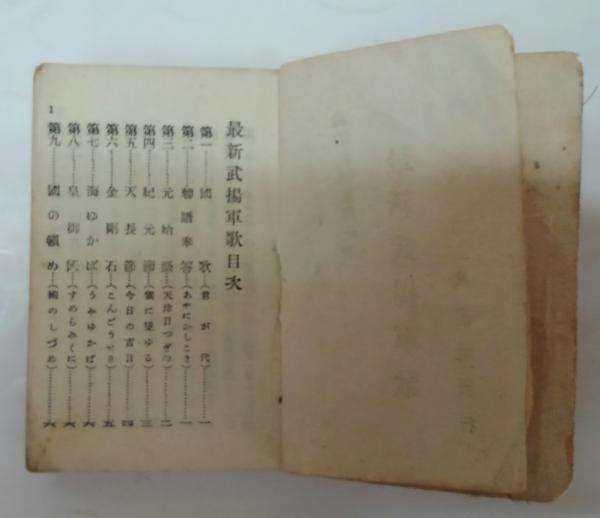 最新武揚軍歌目次
第一……國歌…(君が代)……一
第二……勅語奉答…(あやにかしこき)……一
第三……元始祭…(天津日つぎの)……二
第四……紀元節…(雲に聳ゆる)……三
第五……天長節…(今日の吉日)……四
第六……金剛石…(こんどうせき)……五
第七……海ゆかば…(うみゆかば)……六
第八……皇御國…(すめらみくに)……六
第九……國の鎭め…(國のしづめ)……六
1